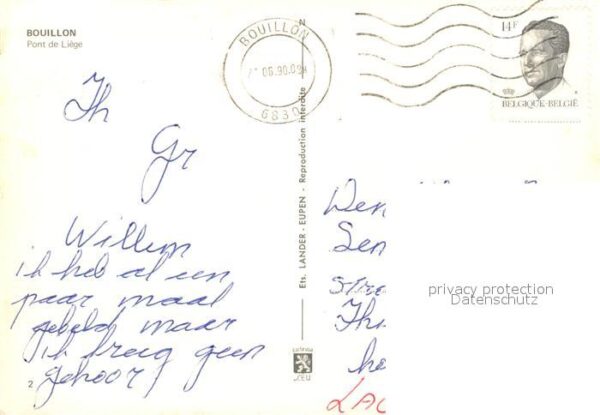 BOUILLON
Pont de Liège
BOUILLON
06.90.09
6830
14F
BELGIQUE-BELGIË
Th
Gr
Willem
ik heb al een
paar maal
gebeld maar
ik kreeg geen
gehoor
2
Ets. LANDER - EUPEN - Reproduction interdite
Den
Sen
stre
Th
he
LAC
privacy protection
Datenschutz